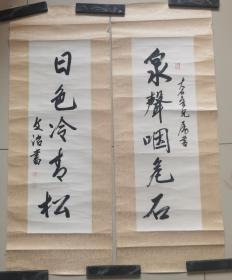 泉聲咽危石
日色冷青松
文治書